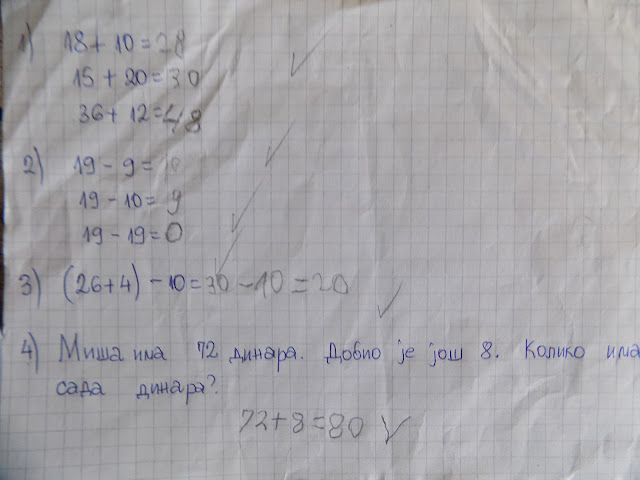 1) 18 + 10 = 28
15 + 20 = 30
36 + 12 = 48
2) 19 - 9 = 10
19 - 10 = 9
19 - 19 = 0
3) (26+4) - 10 = 30 - 10 = 20
4) Миша има 72 динара. Добио је још 8. Колико има
сада динара?
72+8=80